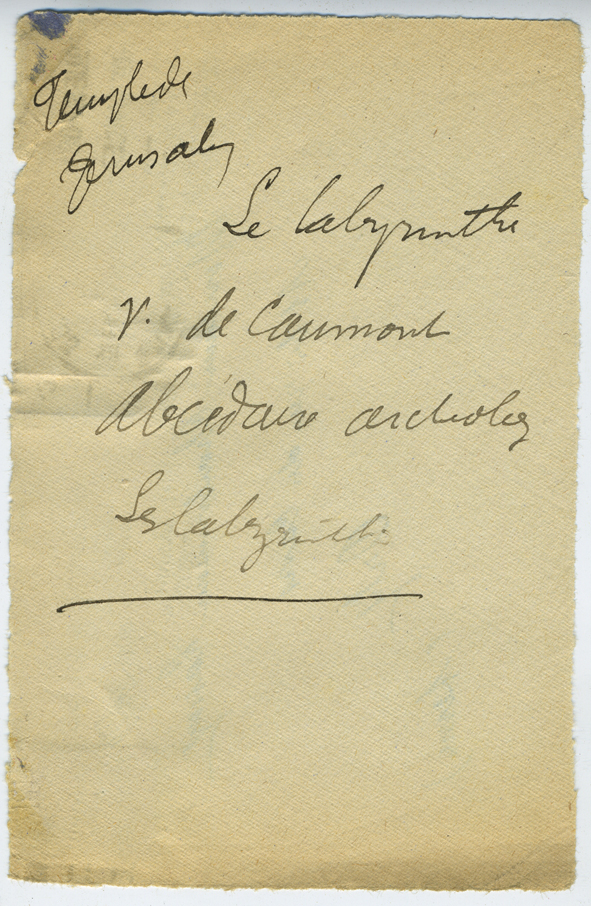 Temple de
Jerusalem
Le labyrinthe
V. de Caumont
Abécédaire archeolog
Les labyrinthes